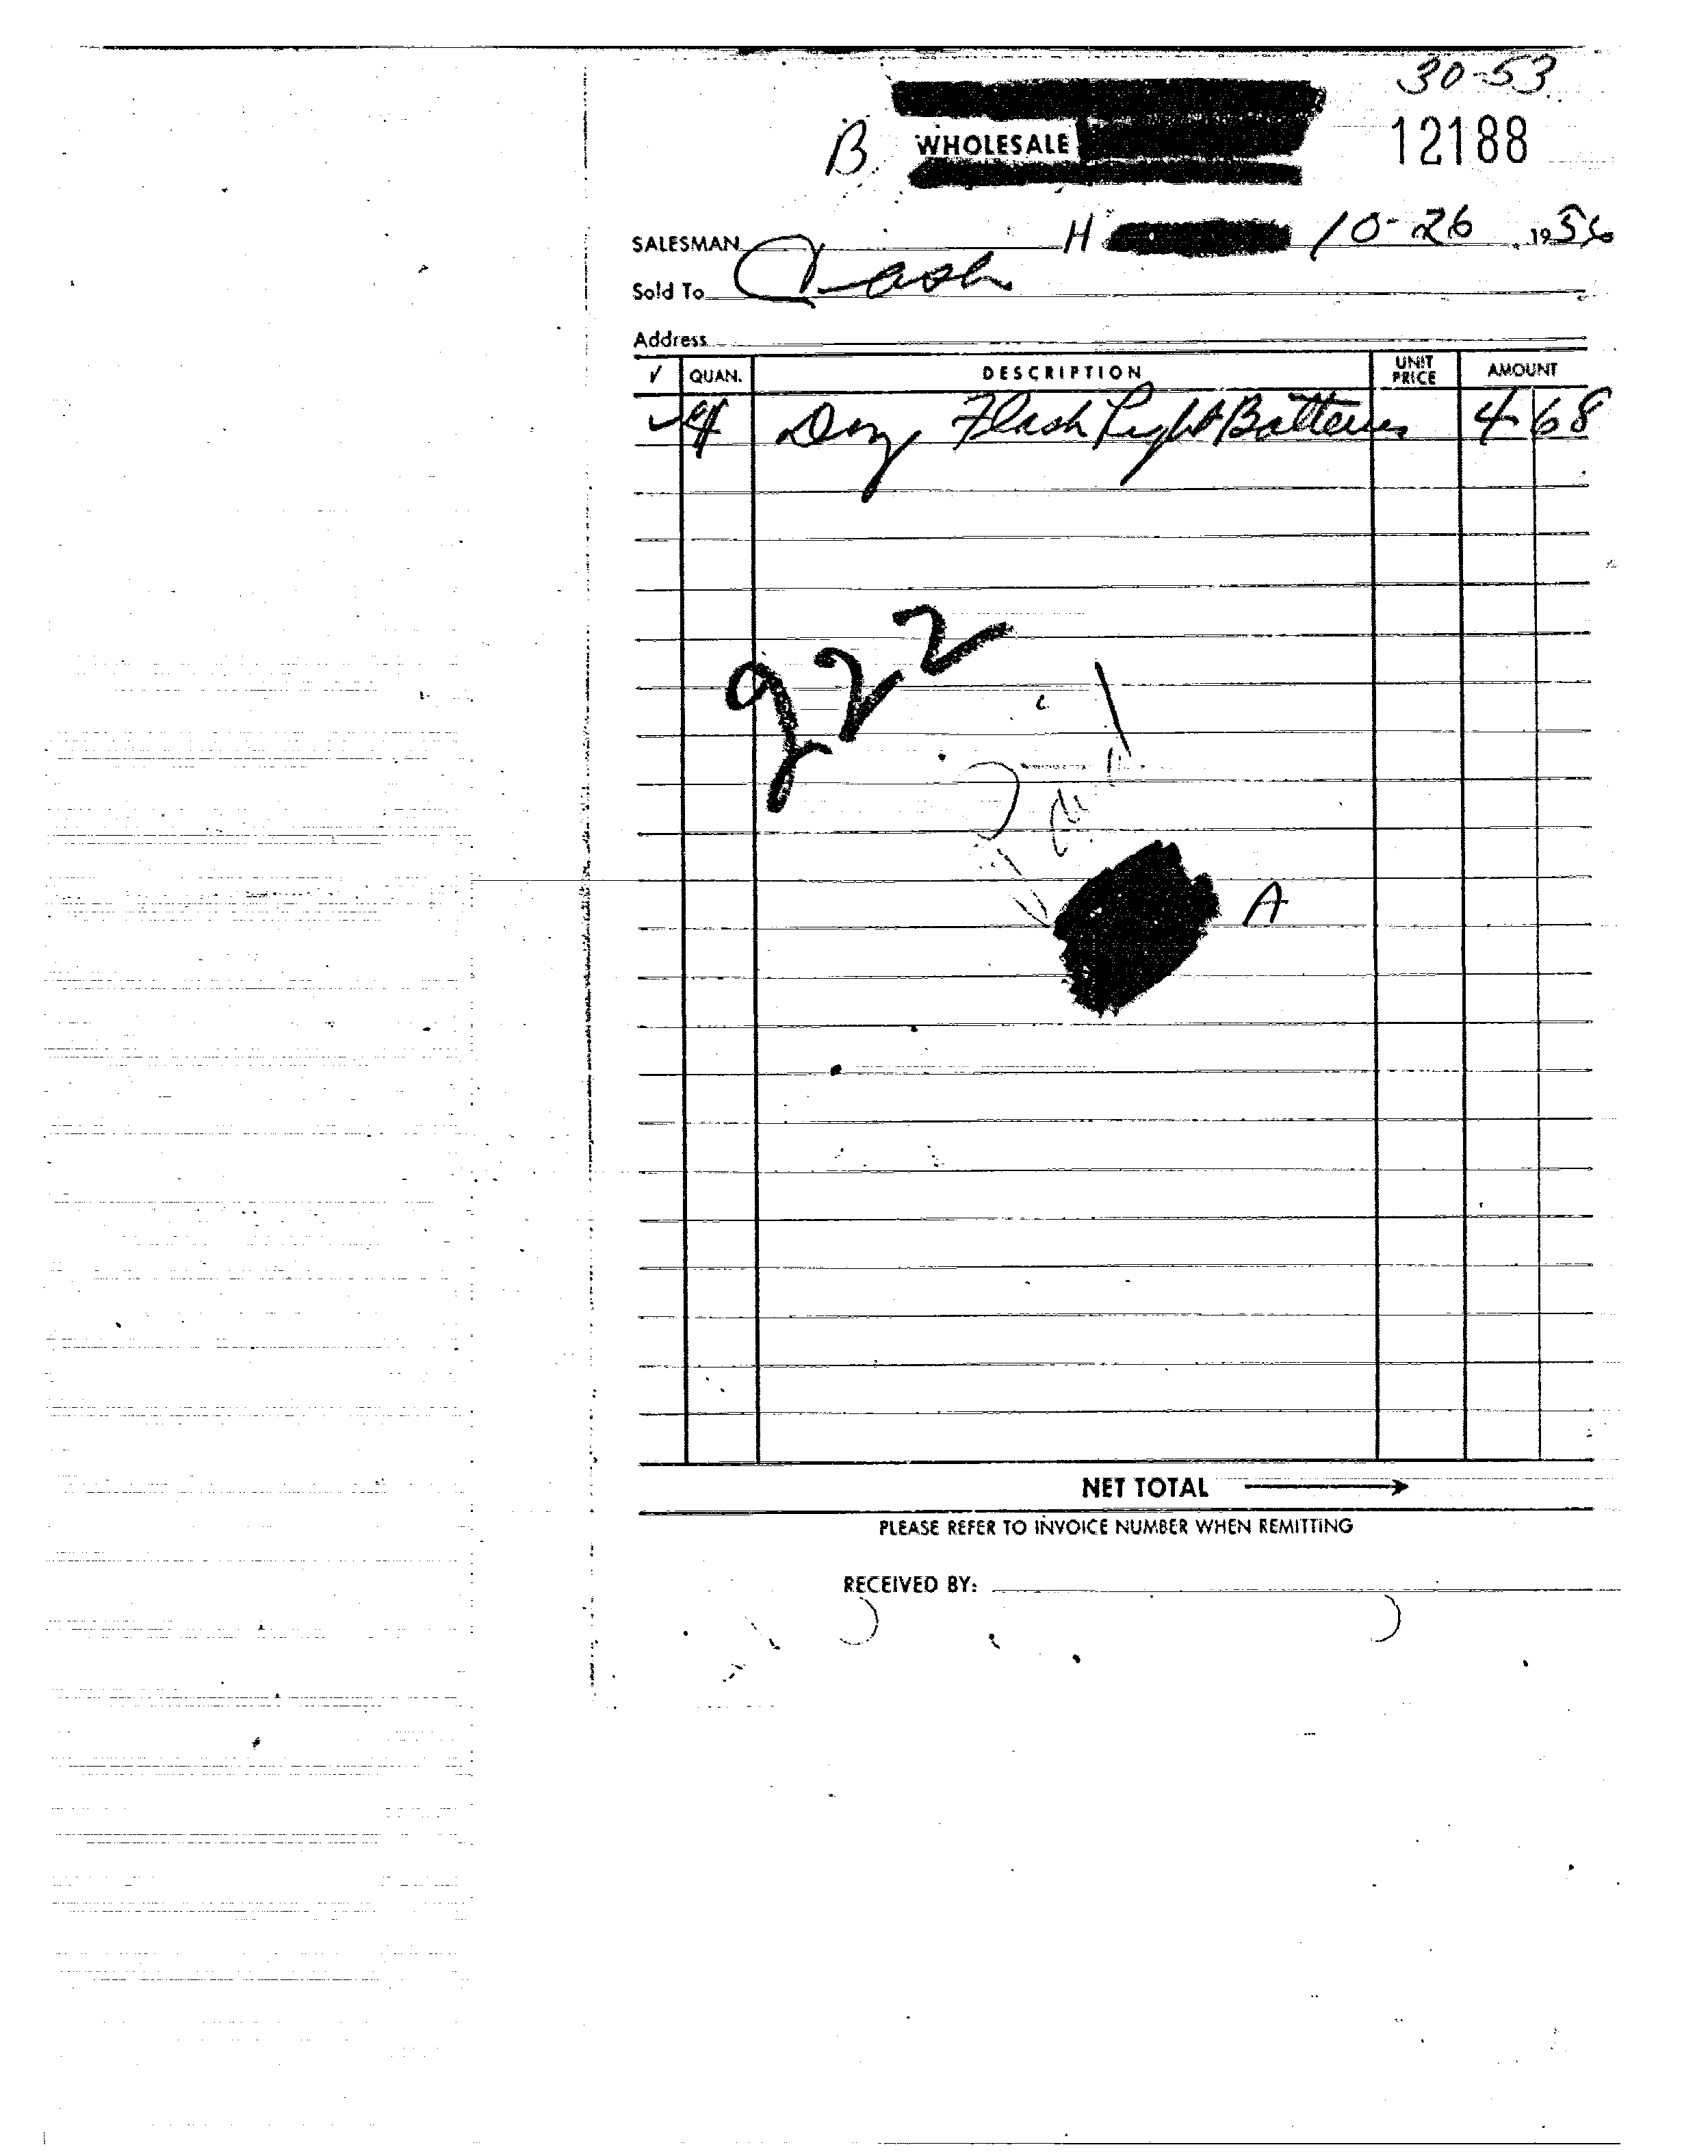 30-53
B WHOLESALE 12188
SALESMAN H 10-26, 1956
Sold To Cash
Address
✓ QUAN. DESCRIPTION UNIT PRICE AMOUNT
✓ 4 Doz Flash Light Batteries 4 68
222
A
NET TOTAL
PLEASE REFER TO INVOICE NUMBER WHEN REMITTING
RECEIVED BY: